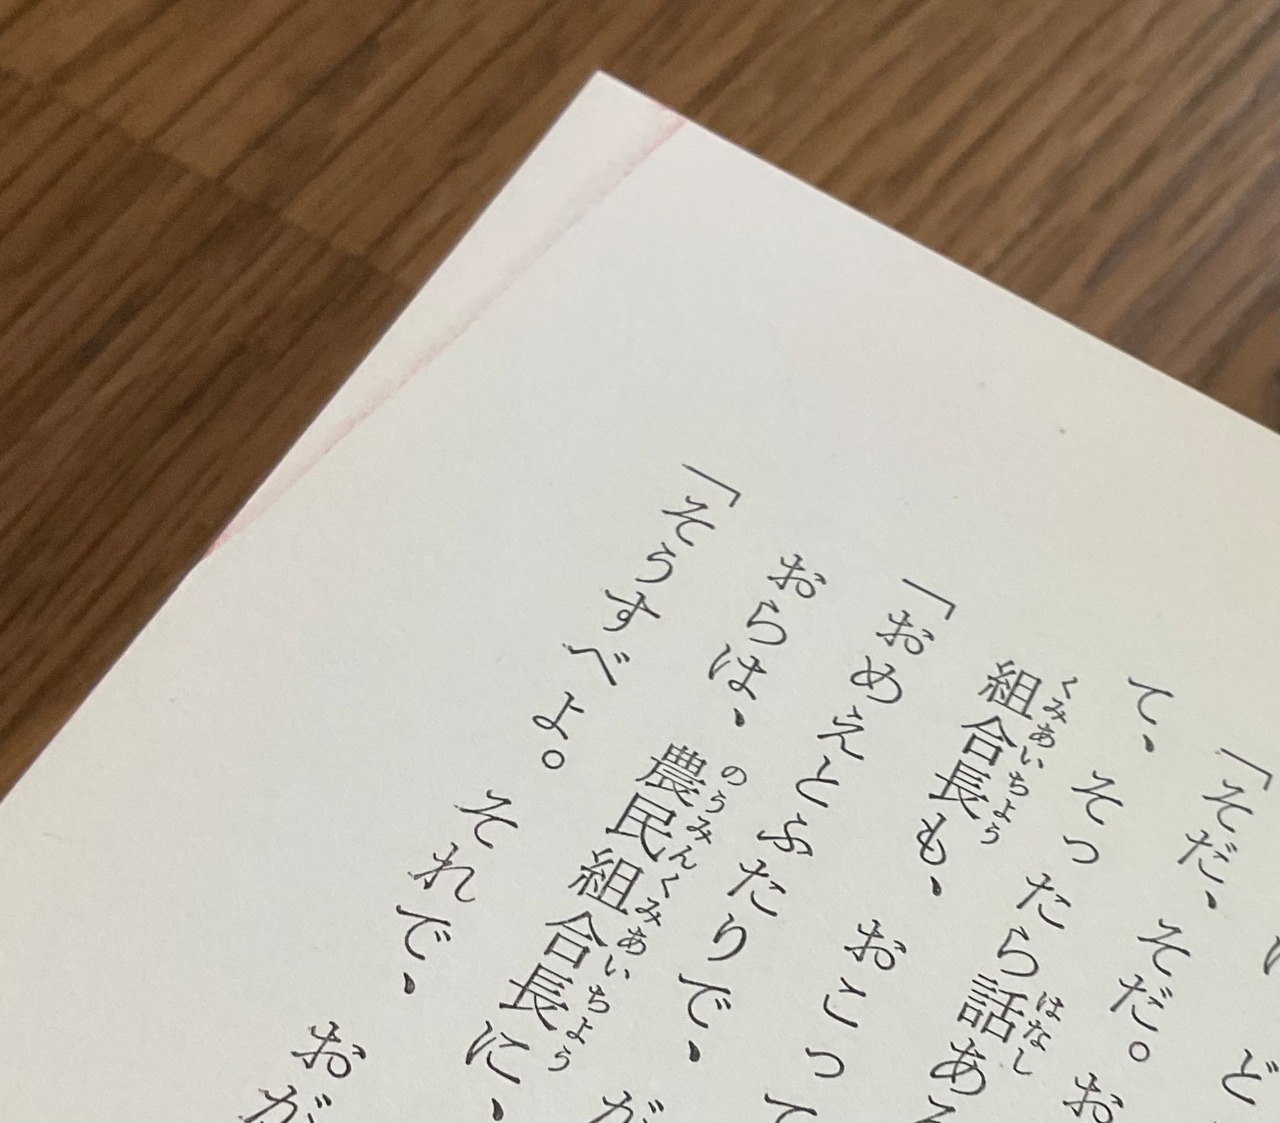 ど
「そだ、そだ。お
て、そったら話あ
はなし
組合長も、おこって
くみあいちょう
「おめえとふたりで、が
おらは、農民組合長に、
のうみんくみあいちょう
「そうすべよ。それで、おが